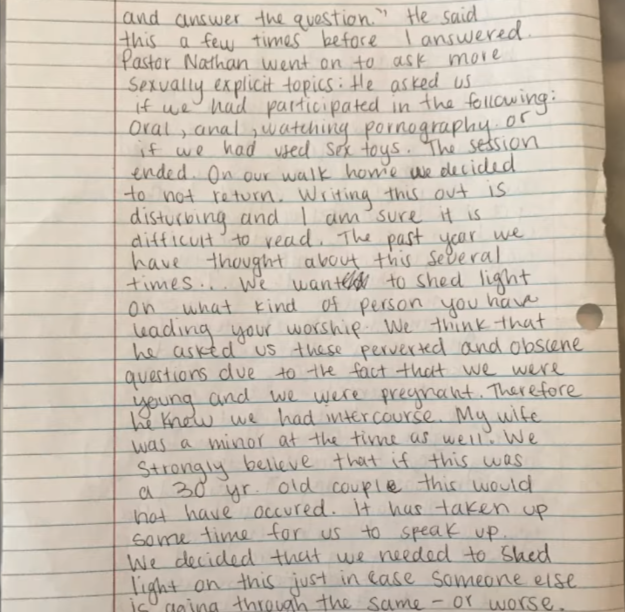 and answer the question." He said
this a few times before I answered.
Pastor Nathan went on to ask more
sexually explicit topics: He asked us
if we had participated in the following:
Oral, anal, watching pornography or
if we had used sex toys. The session
ended. On our walk home we decided
to not return. Writing this out is
disturbing and I am sure it is
difficult to read. The past year we
have thought about this several
times... We want to shed light
on what kind of person you have
leading your worship. We think that
he asked us these perverted and obscene
questions due to the fact that we were
young and we were pregnant. Therefore
he knew we had intercourse. My wife
was a minor at the time as well. We
strongly believe that if this was
a 30 yr. old couple this would
not have occured. It has taken up
some time for us to speak up.
We decided that we needed to shed
light on this just in case someone else
is going through the same - or worse